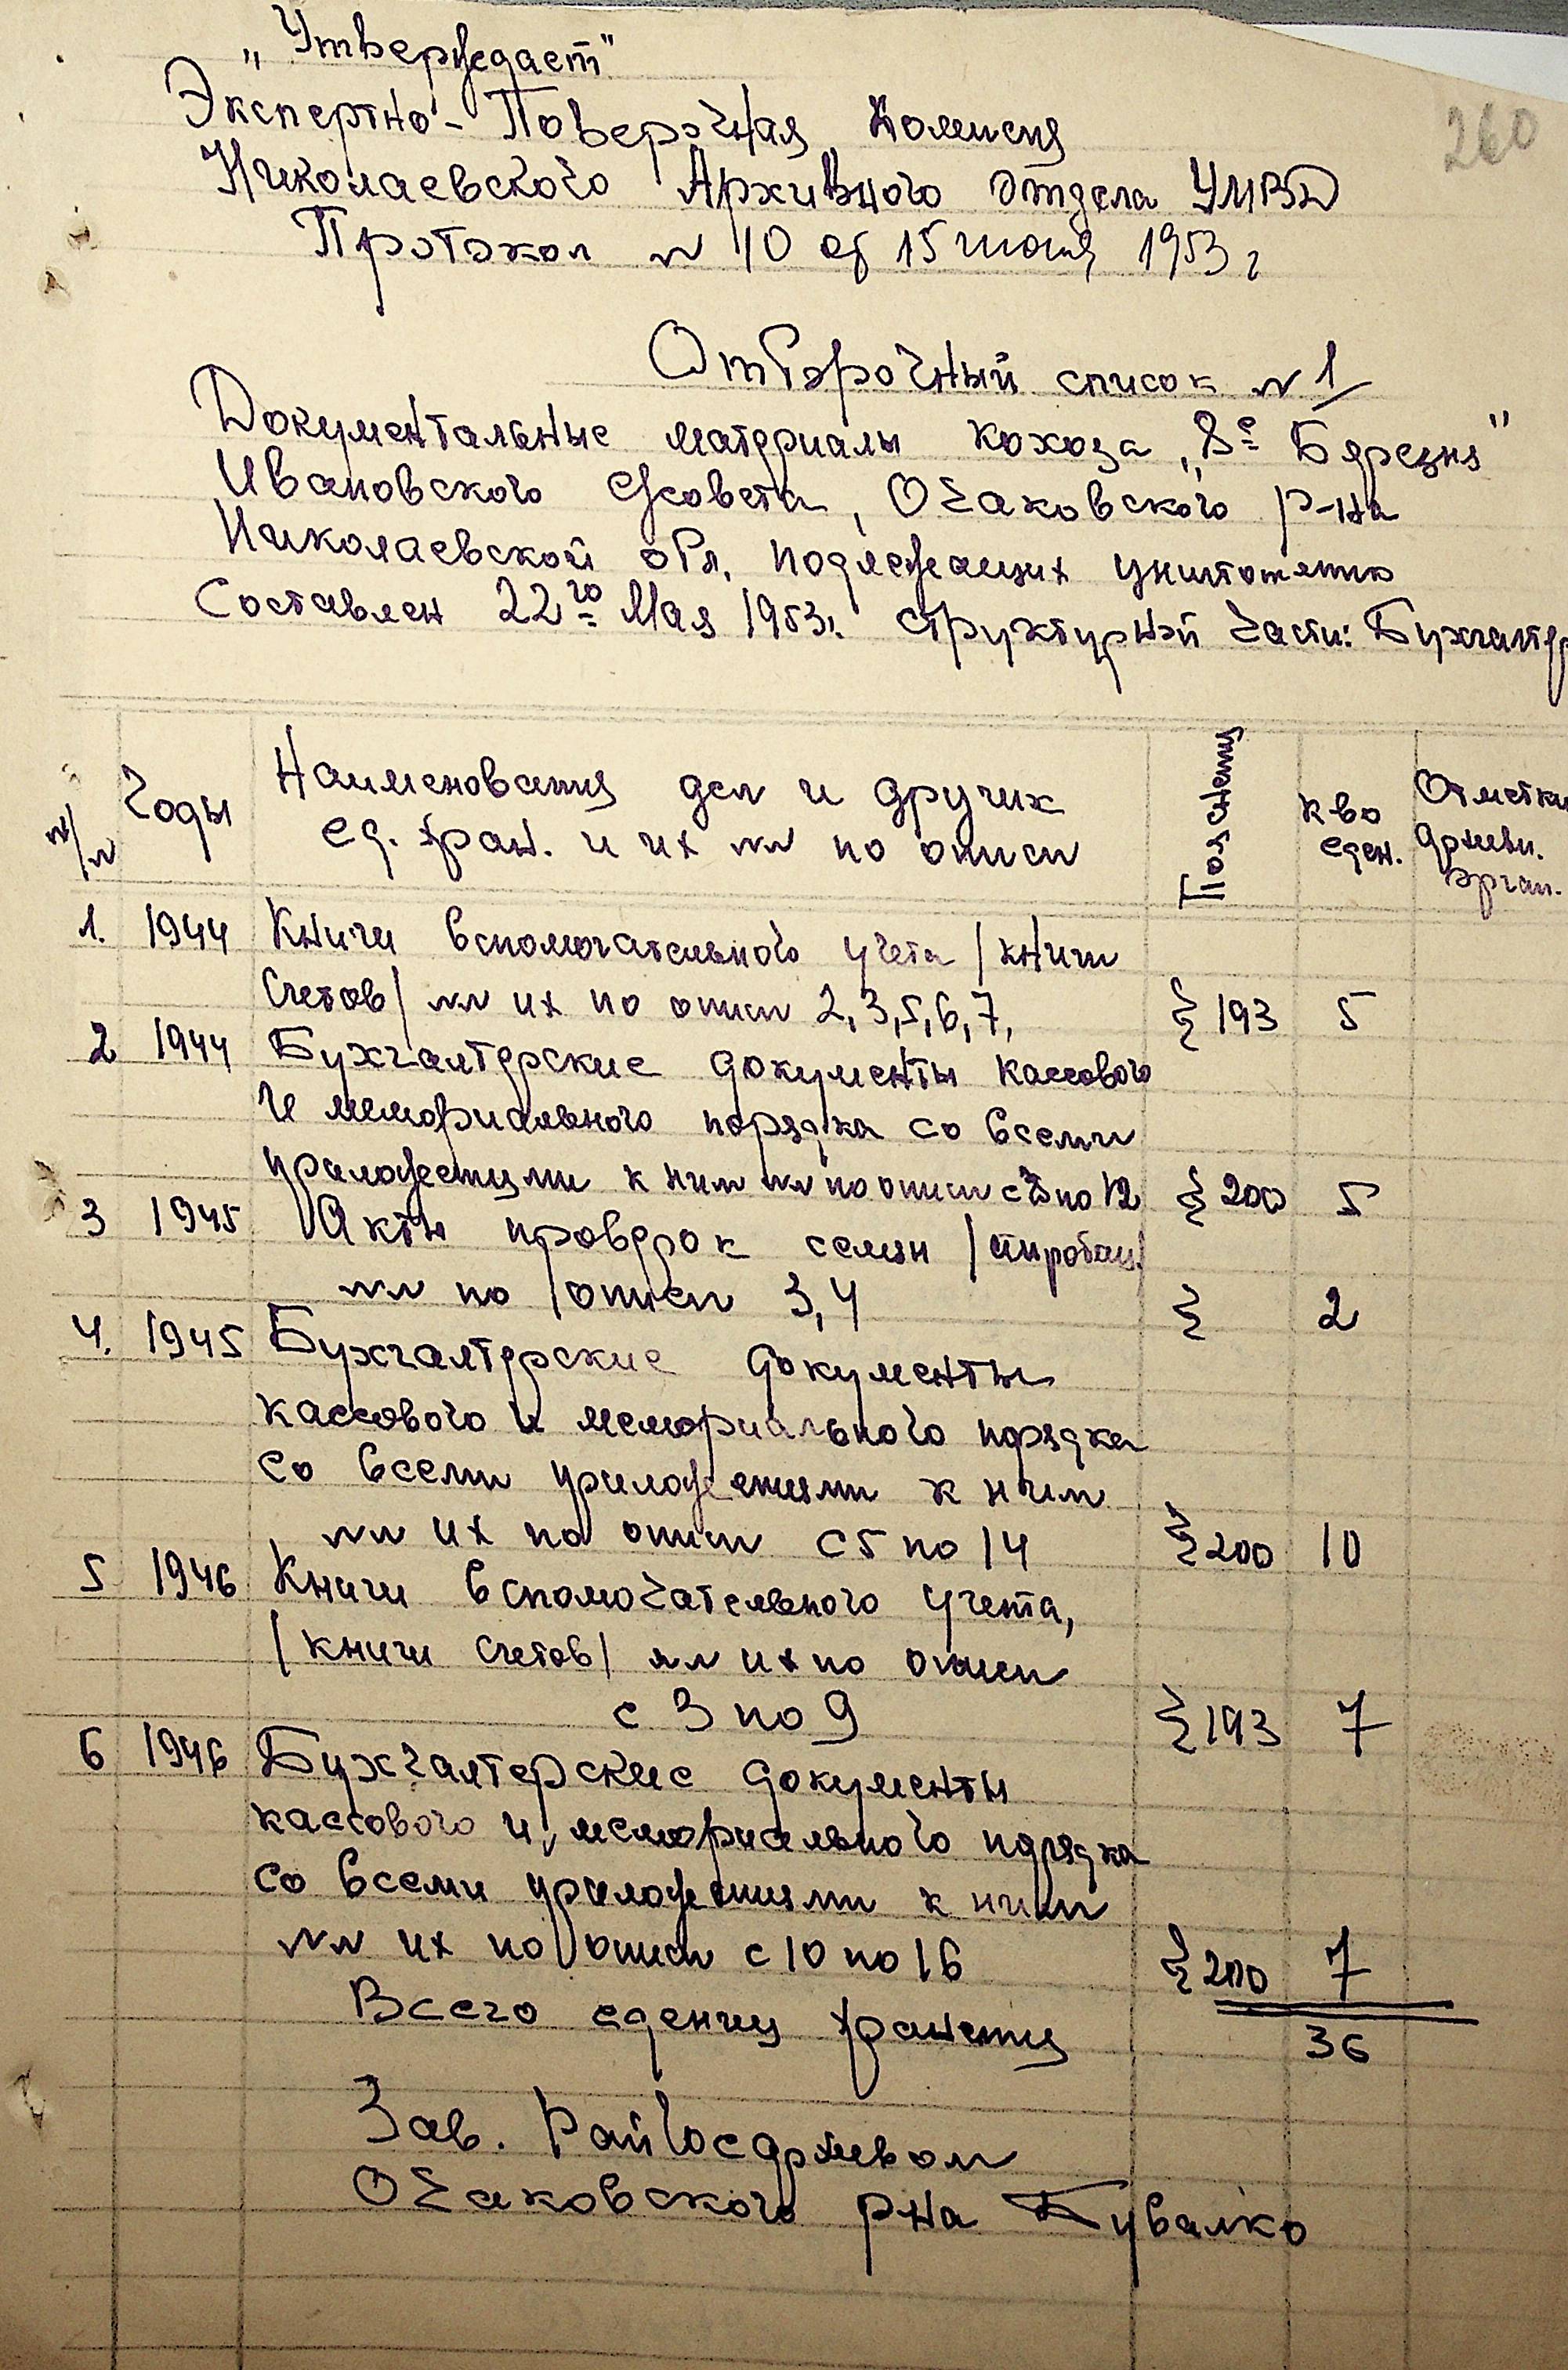 260
„Утверждает"
Экспертно-Поверочная Комисия
Николаевского Архивного отдела УМВД
Протокол № 10 от 15 июня 1953 г
Отборочный список № 1
Документальные материалы кохоза „8е Березня"
Ивановского с/совета, Очаковского р-на
Николаевской обл. подлежащих уничтожению
Составлен 22го Мая 1953г. структурной части: Бухгалтер
№/№ Годы Наименования дел и других Постатейн к-во Отметки
ед. хран. и их №№ по описи еден. архивн.
орган.
1. 1944 Книги вспомогательного учета /книги
счетов/ №№ их по описи 2,3,5,6,7, } 193 5
2 1944 Бухгалтерские документы кассового
и мемориального порядка со всеми
приложениями к ним №№ по описи с 8 по 12 } 200 5
3 1945 Акты проверок семян /апробац./
№№ по описи 3,4 } 2
4. 1945 Бухгалтерские документы
кассового и мемориального порядка
со всеми приложениями к ним
№№ их по описи с 5 по 14 } 200 10
5 1946 Книги вспомогательного учета,
/книги счетов/ №№ их по описи
с 3 по 9 } 193 7
6 1946 Бухгалтерские документы
кассового и мемориального порядка
со всеми приложениями к ним
№№ их по описи с 10 по 16 } 200 7
Всего едениц хранения 36
Зав. Райгосархивом
Очаковского р-на Бувалко